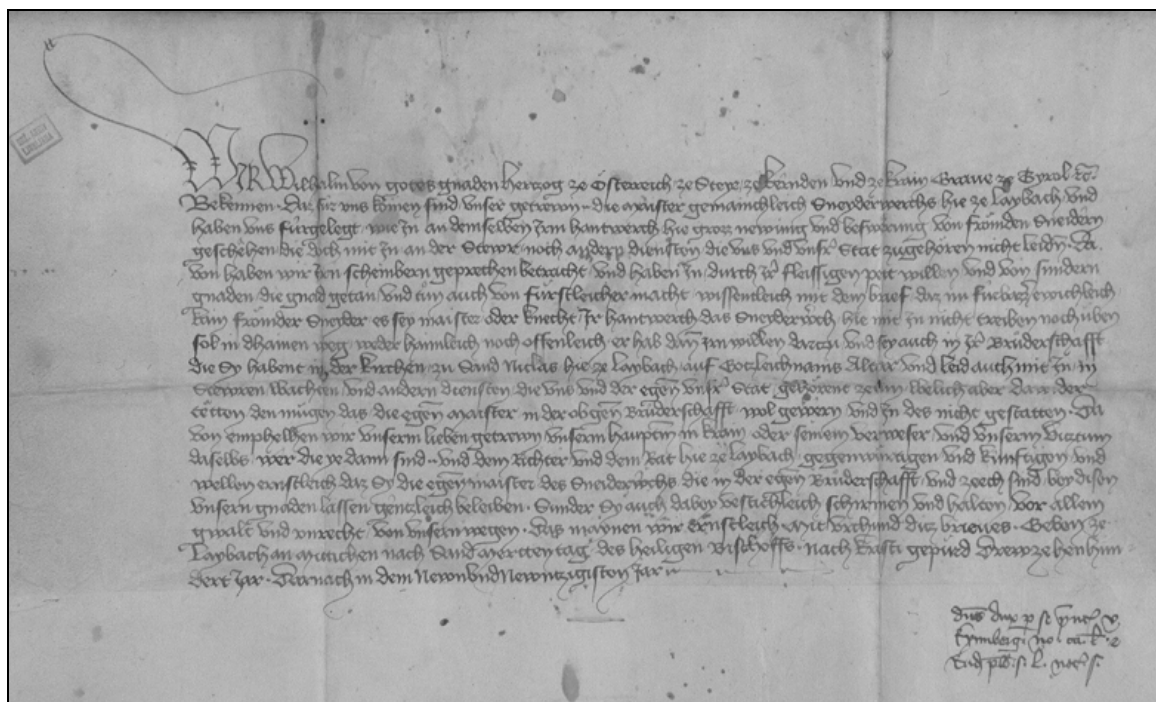 WIR Wilhalm von gotes gnaden Herczog ze Österreich ze Steyr ze Kernden vnd ze Krain Graue ze Tyrol etc.
Bekennen. Daz für vns komen sind vnser getrewn die maister gemainchleich Sneyderwerchs hie ze Laybach vnd
haben vns fürgelegt wie in an demselben irm hantwerch hie groz newinng vnd beswerung von frömden Sneidern
geschehen die doch mit in an der Stewr noch andern diensten die vns vnd vnsrer Stat zugehören nicht leiden. Da
von haben wir iren scheinbern geprechen betracht vnd haben in durch irer fleissigen pett willen vnd von sundern
gnaden die gnad getan vnd tun auch von fürstleicher macht wissentleich mit dem brief daz nu fürbazz ewichleich
kain frömder Sneyder es sey maister oder knecht Ir hantwerch das Sneyderwerch hie mit in nicht treiben noch üben
sol in dhainen weg weder haimleich noch offenleich er hab dann irn willen darczu vnd sey auch in irer Bruderschafft
die Sy habent in der kirchen zu Sand Niclas hie ze Laybach auf Gotzleichnams Altar vnd leid auch mit in in
Stewren wachen vnd andern diensten die vns vnd der egenn vnsrer Stat gehörent ze tun welich aber dawider
tetten den mügen das die egenn maister in der obgenn Bruderschafft wol gewern vnd in des nicht gestatten. Da
von emphelhen wir vnserm lieben getrewn vnserm hauptm in Krain oder seinem verweser vnd vnserm viztum
daselbs wer die ye dann sind vnd dem Richter vnd dem Rat hie ze Laybach gegenwürtigen vnd künftigen vnd
wellen ernstleich daz Sy die egenn maister des Sneiderwerchs die in der egenn Bruderschafft vnd zeech sind bey disen
vnsern gnaden lassen genczleich beleiben. Sunder Sy auch dabey vestichleich schirmen vnd halten vor allem
gwalt vnd vnrecht von vnsern wegen. Das mainen wir ernstleich. Mit vrchund diz brieues. Geben ze
Laybach an mitichen nach Sand mertten tag des heiligen Bischoffs. Nach Kristi gepürd Drewzehenhun
dert Jar. Darnach in dem Newnvndnewnczigisten Jar
dns dux p se